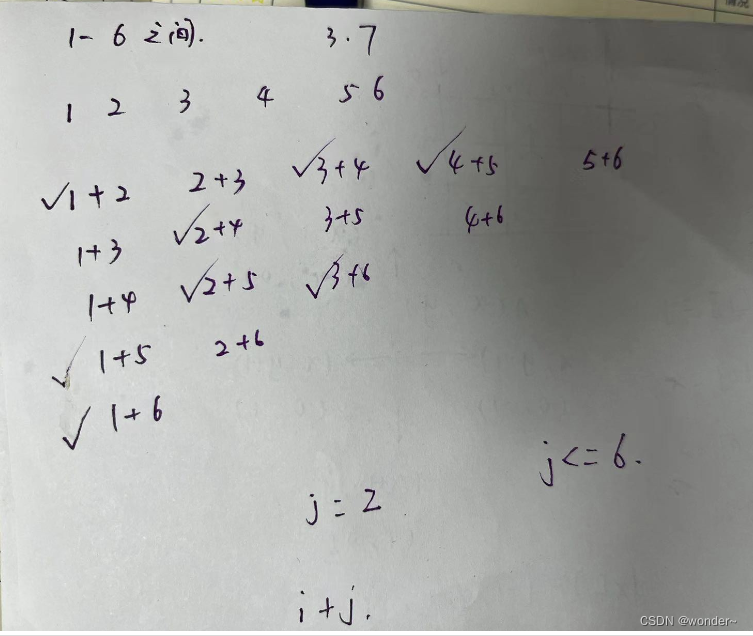 1- 6 之间. 3.7
1 2 3 4 5 6
√1+2 2+3 √3+4 √4+5 5+6
1+3 √2+4 3+5 4+6
1+4 √2+5 √3+6
√ 1+5 2+6
√ 1+6
j<=6.
j=2
i+j.
CSDN @wonder~